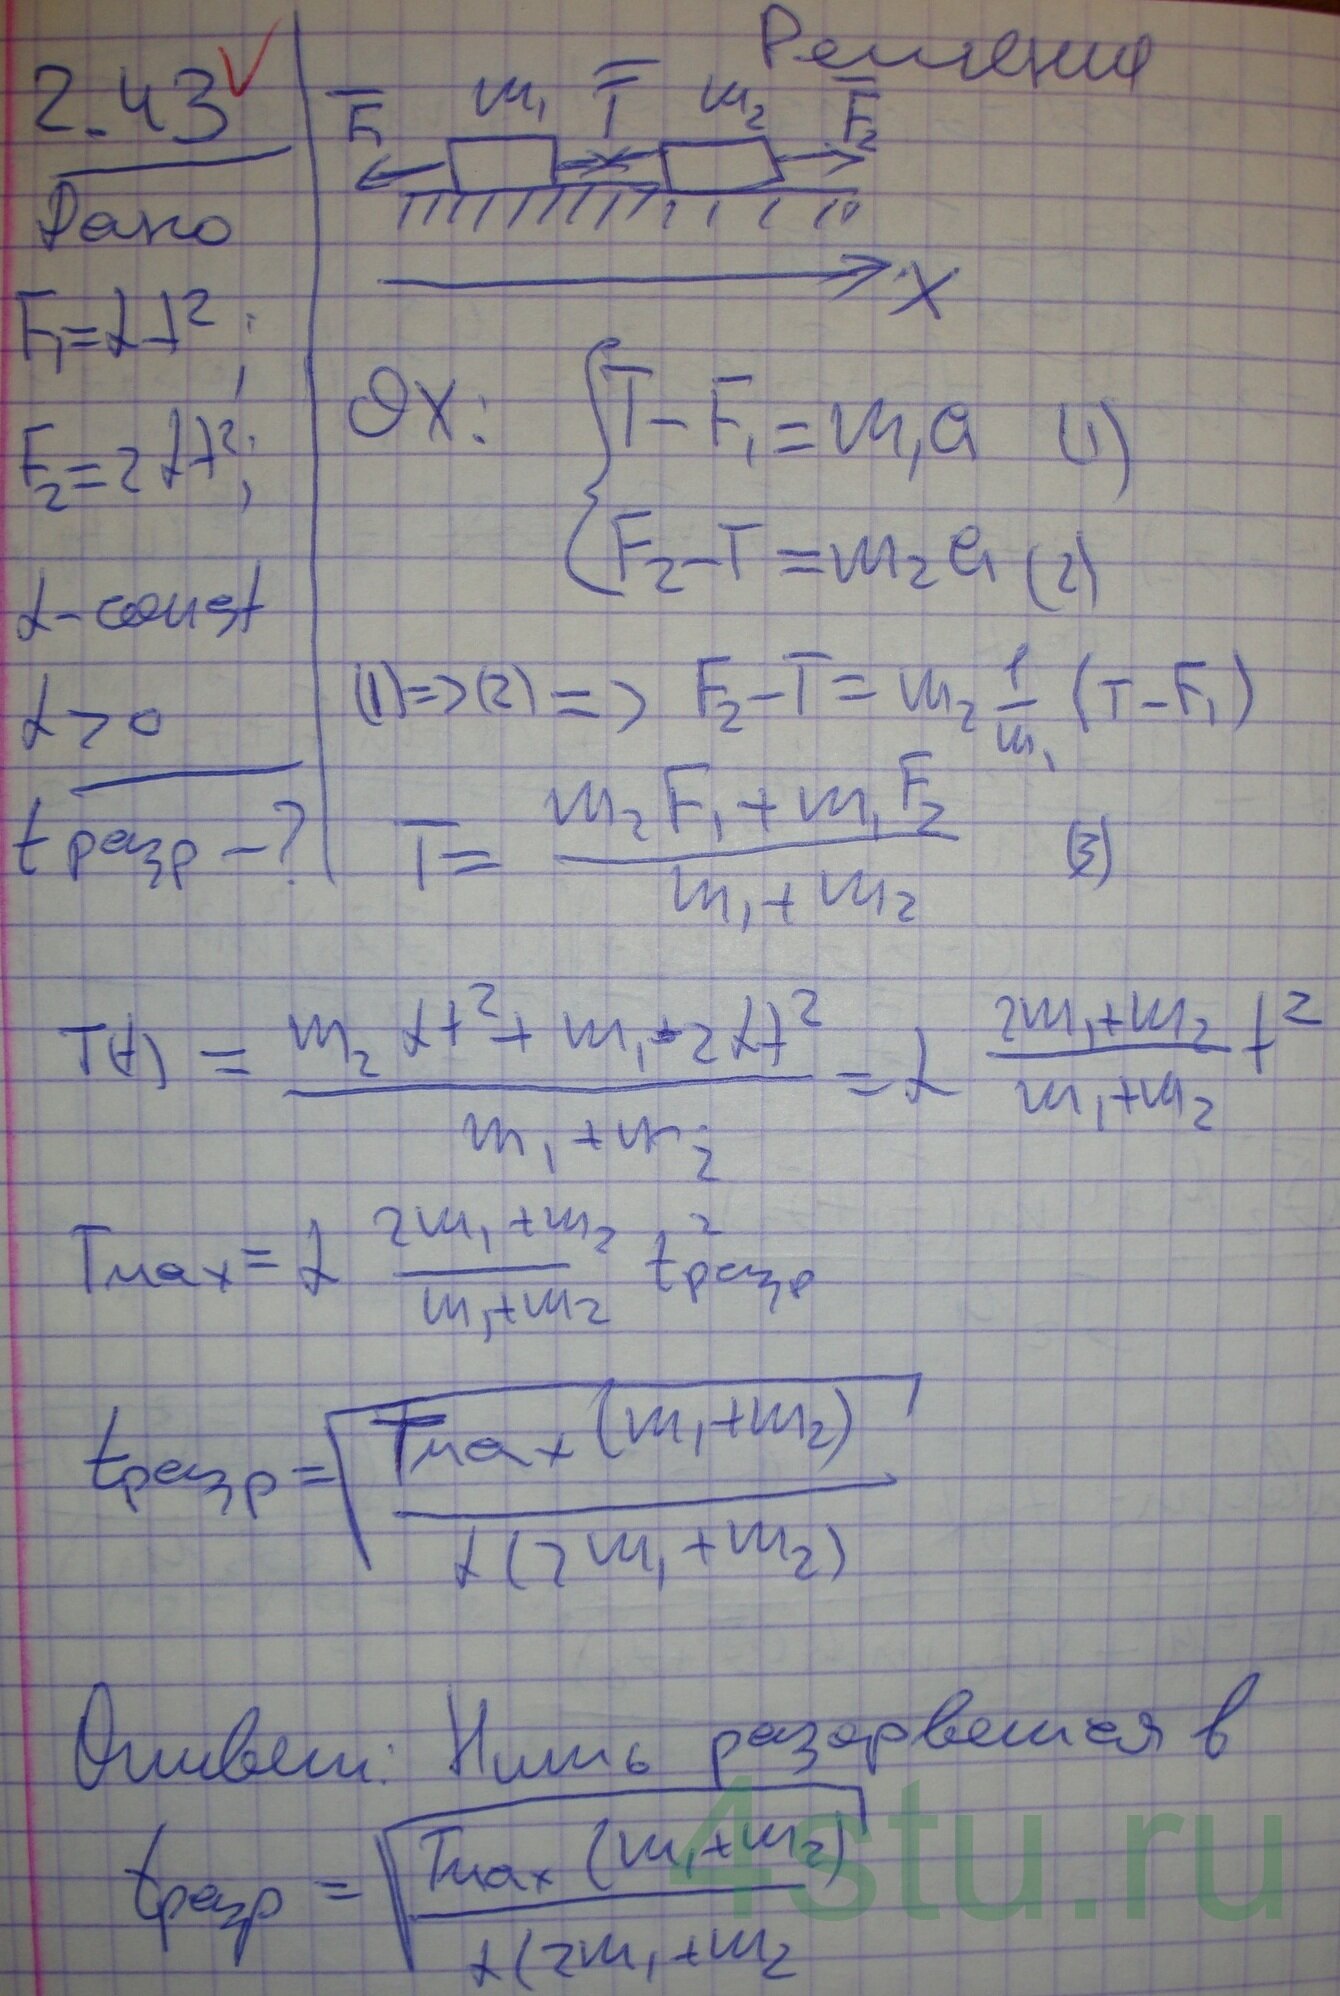 2.43
Решение
F̅₁ m₁ T̅ m₂ F̅₂
X
Дано
F₁ = αt²;
F₂ = 2αt²;
α - const
α > 0
t разр - ?
OX: { T - F₁ = m₁a (1)
F₂ - T = m₂a (2)
(1) => (2) => F₂ - T = m₂ 1/m₁ (T - F₁)
T = (m₂F₁ + m₁F₂)/(m₁ + m₂) (3)
T(t) = (m₂ αt² + m₁ · 2αt²)/(m₁ + m₂) = α (2m₁ + m₂)/(m₁ + m₂) t²
Tmax = α (2m₁ + m₂)/(m₁ + m₂) t²разр
tразр = √(Tmax (m₁ + m₂)/(α(2m₁ + m₂)))
Ответ: Нить разорвется в
tразр = √(Tmax (m₁ + m₂)/(α(2m₁ + m₂))
4stu.ru